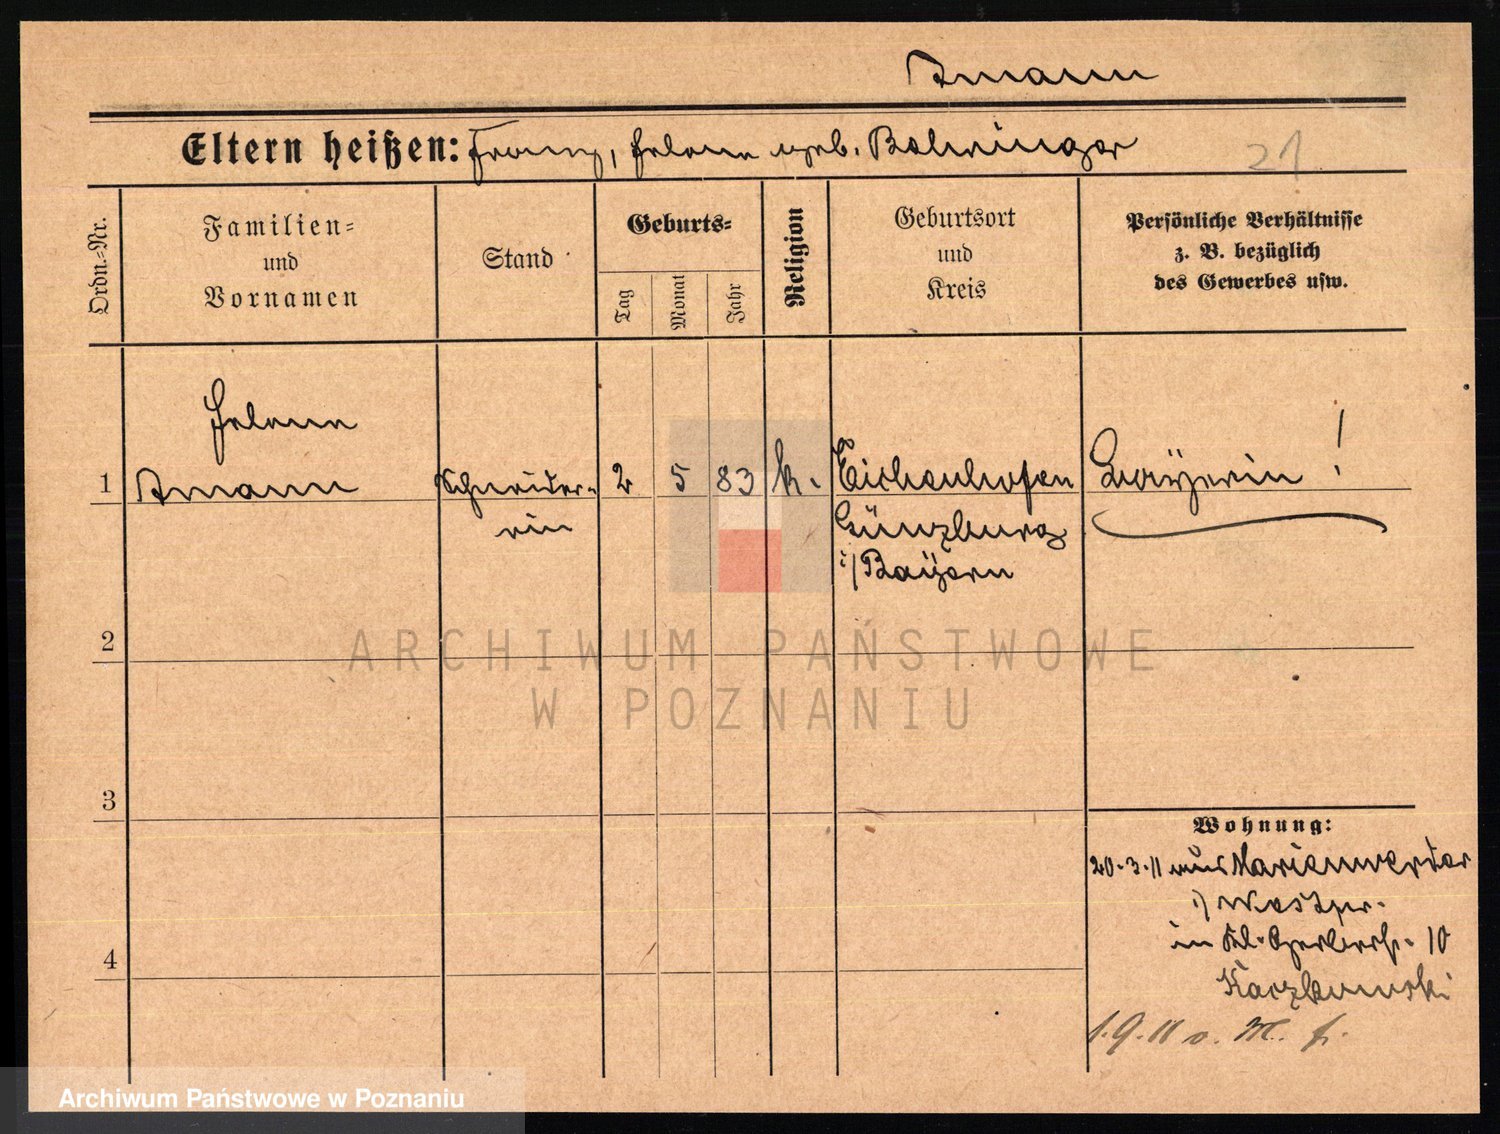 Amann
Eltern heißen: Franz, Helene geb. Behringer
21
Ordn.=Nr.
Familien=
und
Vornamen
Stand
Geburts=
Tag
Monat
Jahr
Religion
Geburtsort
und
Kreis
Persönliche Verhältnisse
z. B. bezüglich
des Gewerbes usw.
Helene
1 Amann Schneider- 2 5 83 k. Eichenhofen Bayerin !
rin Günzburg
i/Bayern
2
3
4
Wohnung:
20.3.11 aus Marienwerder
i/ Westpr.
in Kl. Gerberstr. 10
Kaczkowski
1.9.11 v. M. f.
ARCHIWUM PAŃSTWOWE
W POZNANIU
Archiwum Państwowe w Poznaniu